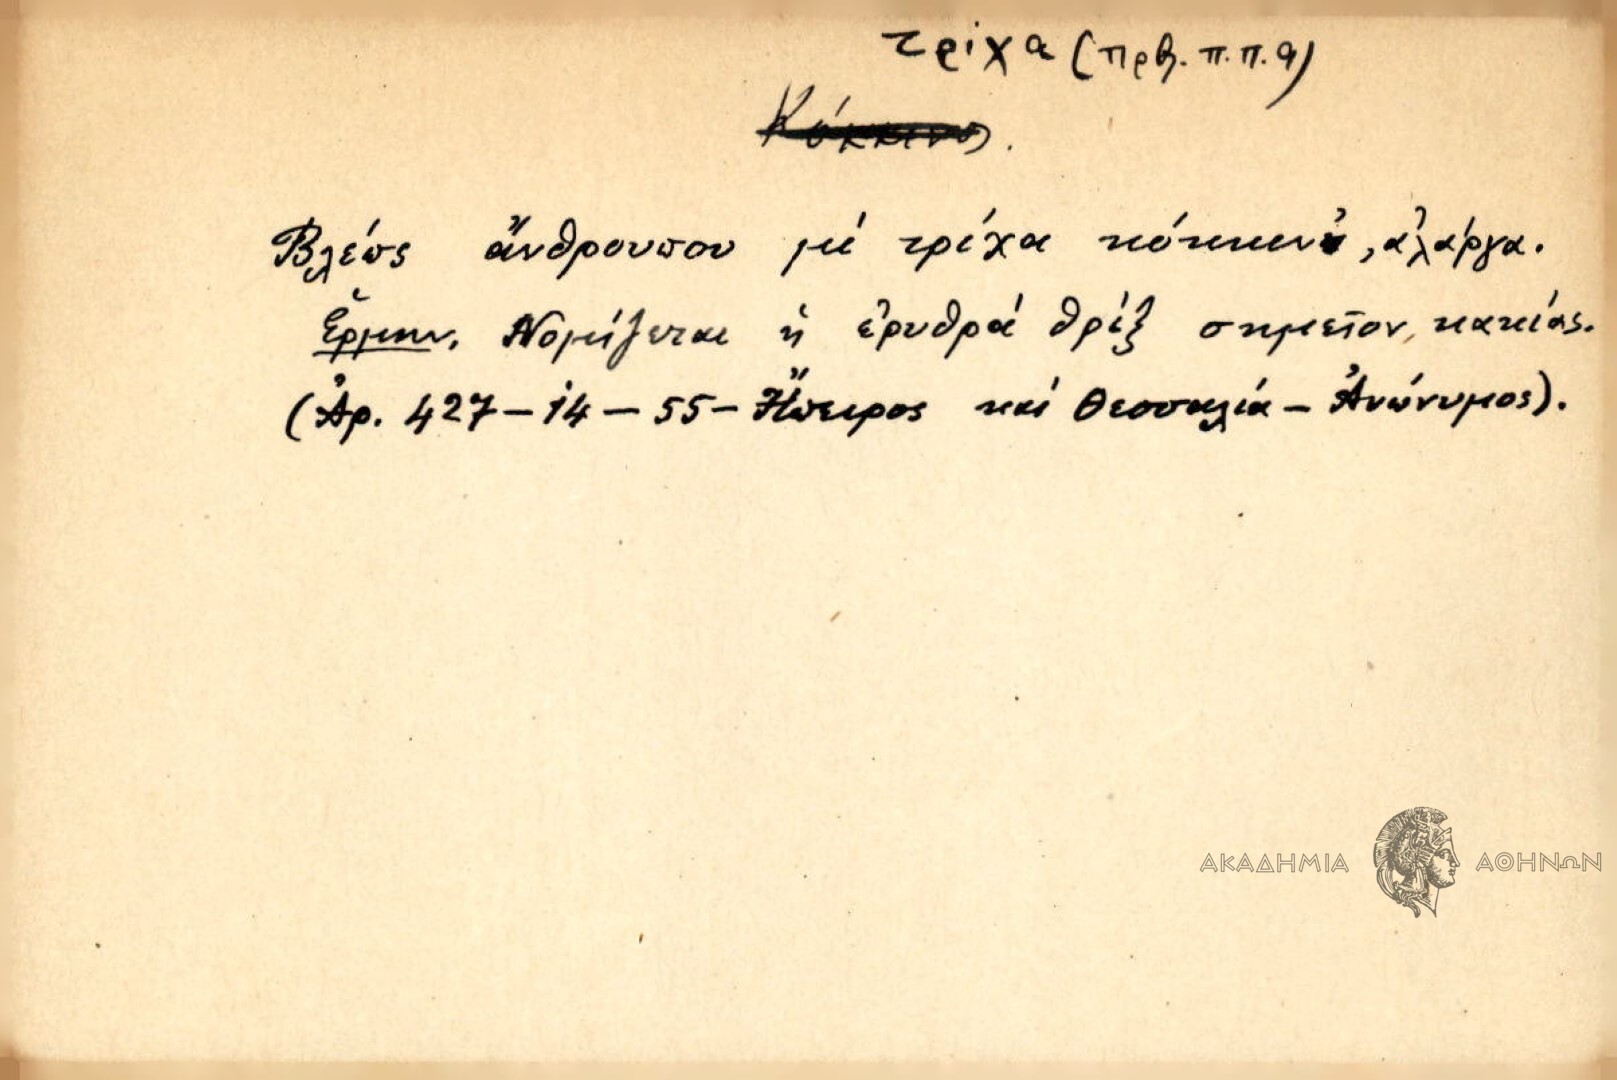 τρίχα (πρβ. π.π. 9)
Κόκκινος.
Βλέπς ἄνθρουπου μέ τρίχα κόκκιν', ἀλάργα.
Ἑρμην. Νομίζεται ἡ ἐρυθρά θρίξ σημεῖον κακίας.
(Ἀρ. 427-14-55- Ἤπειρος καί Θεσσαλία - Ἀνώνυμος).
ΑΚΑΔΗΜΙΑ ΑΘΗΝΩΝ